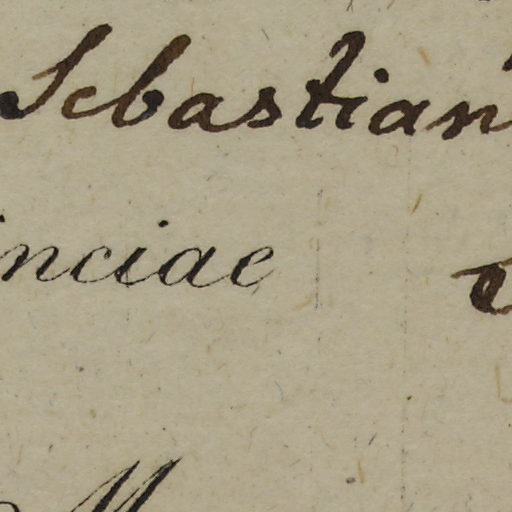 Sebastian
inciae